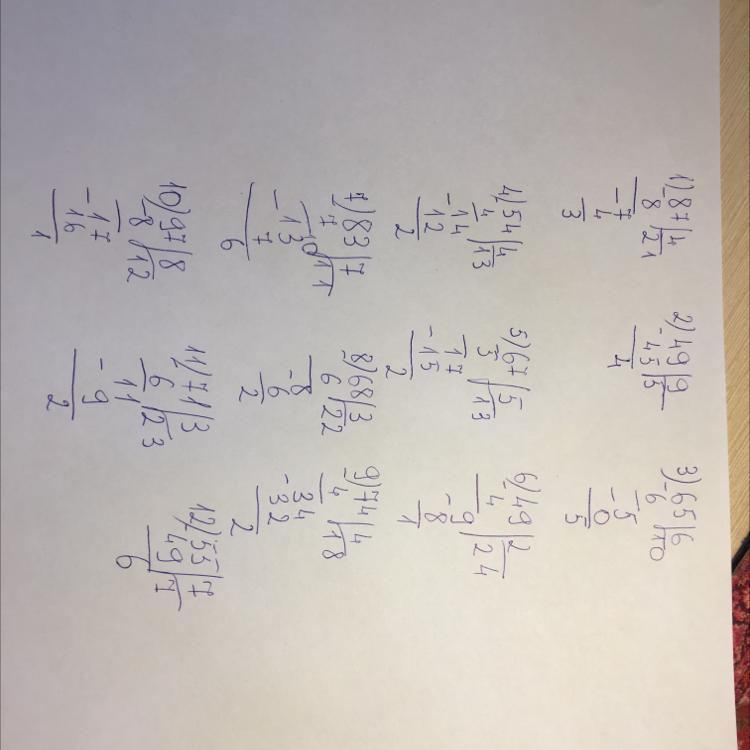 1) 87|4
8 |21
-7
4
3
2) 49|9
-45|5
4
3) 65|6
-6 |10
-5
0
5
4) 54|4
4 |13
-14
12
2
5) 67|5
5 |13
17
-15
2
6) 49|2
4 |24
9
-8
1
7) 83|7
7 |11
-13
7
6
8) 68|3
6 |22
-8
6
2
9) 74|4
4 |18
34
-32
2
10) 97|8
8 |12
-17
16
1
11) 71|3
6 |23
11
-9
2
12) 55|7
49|7
6